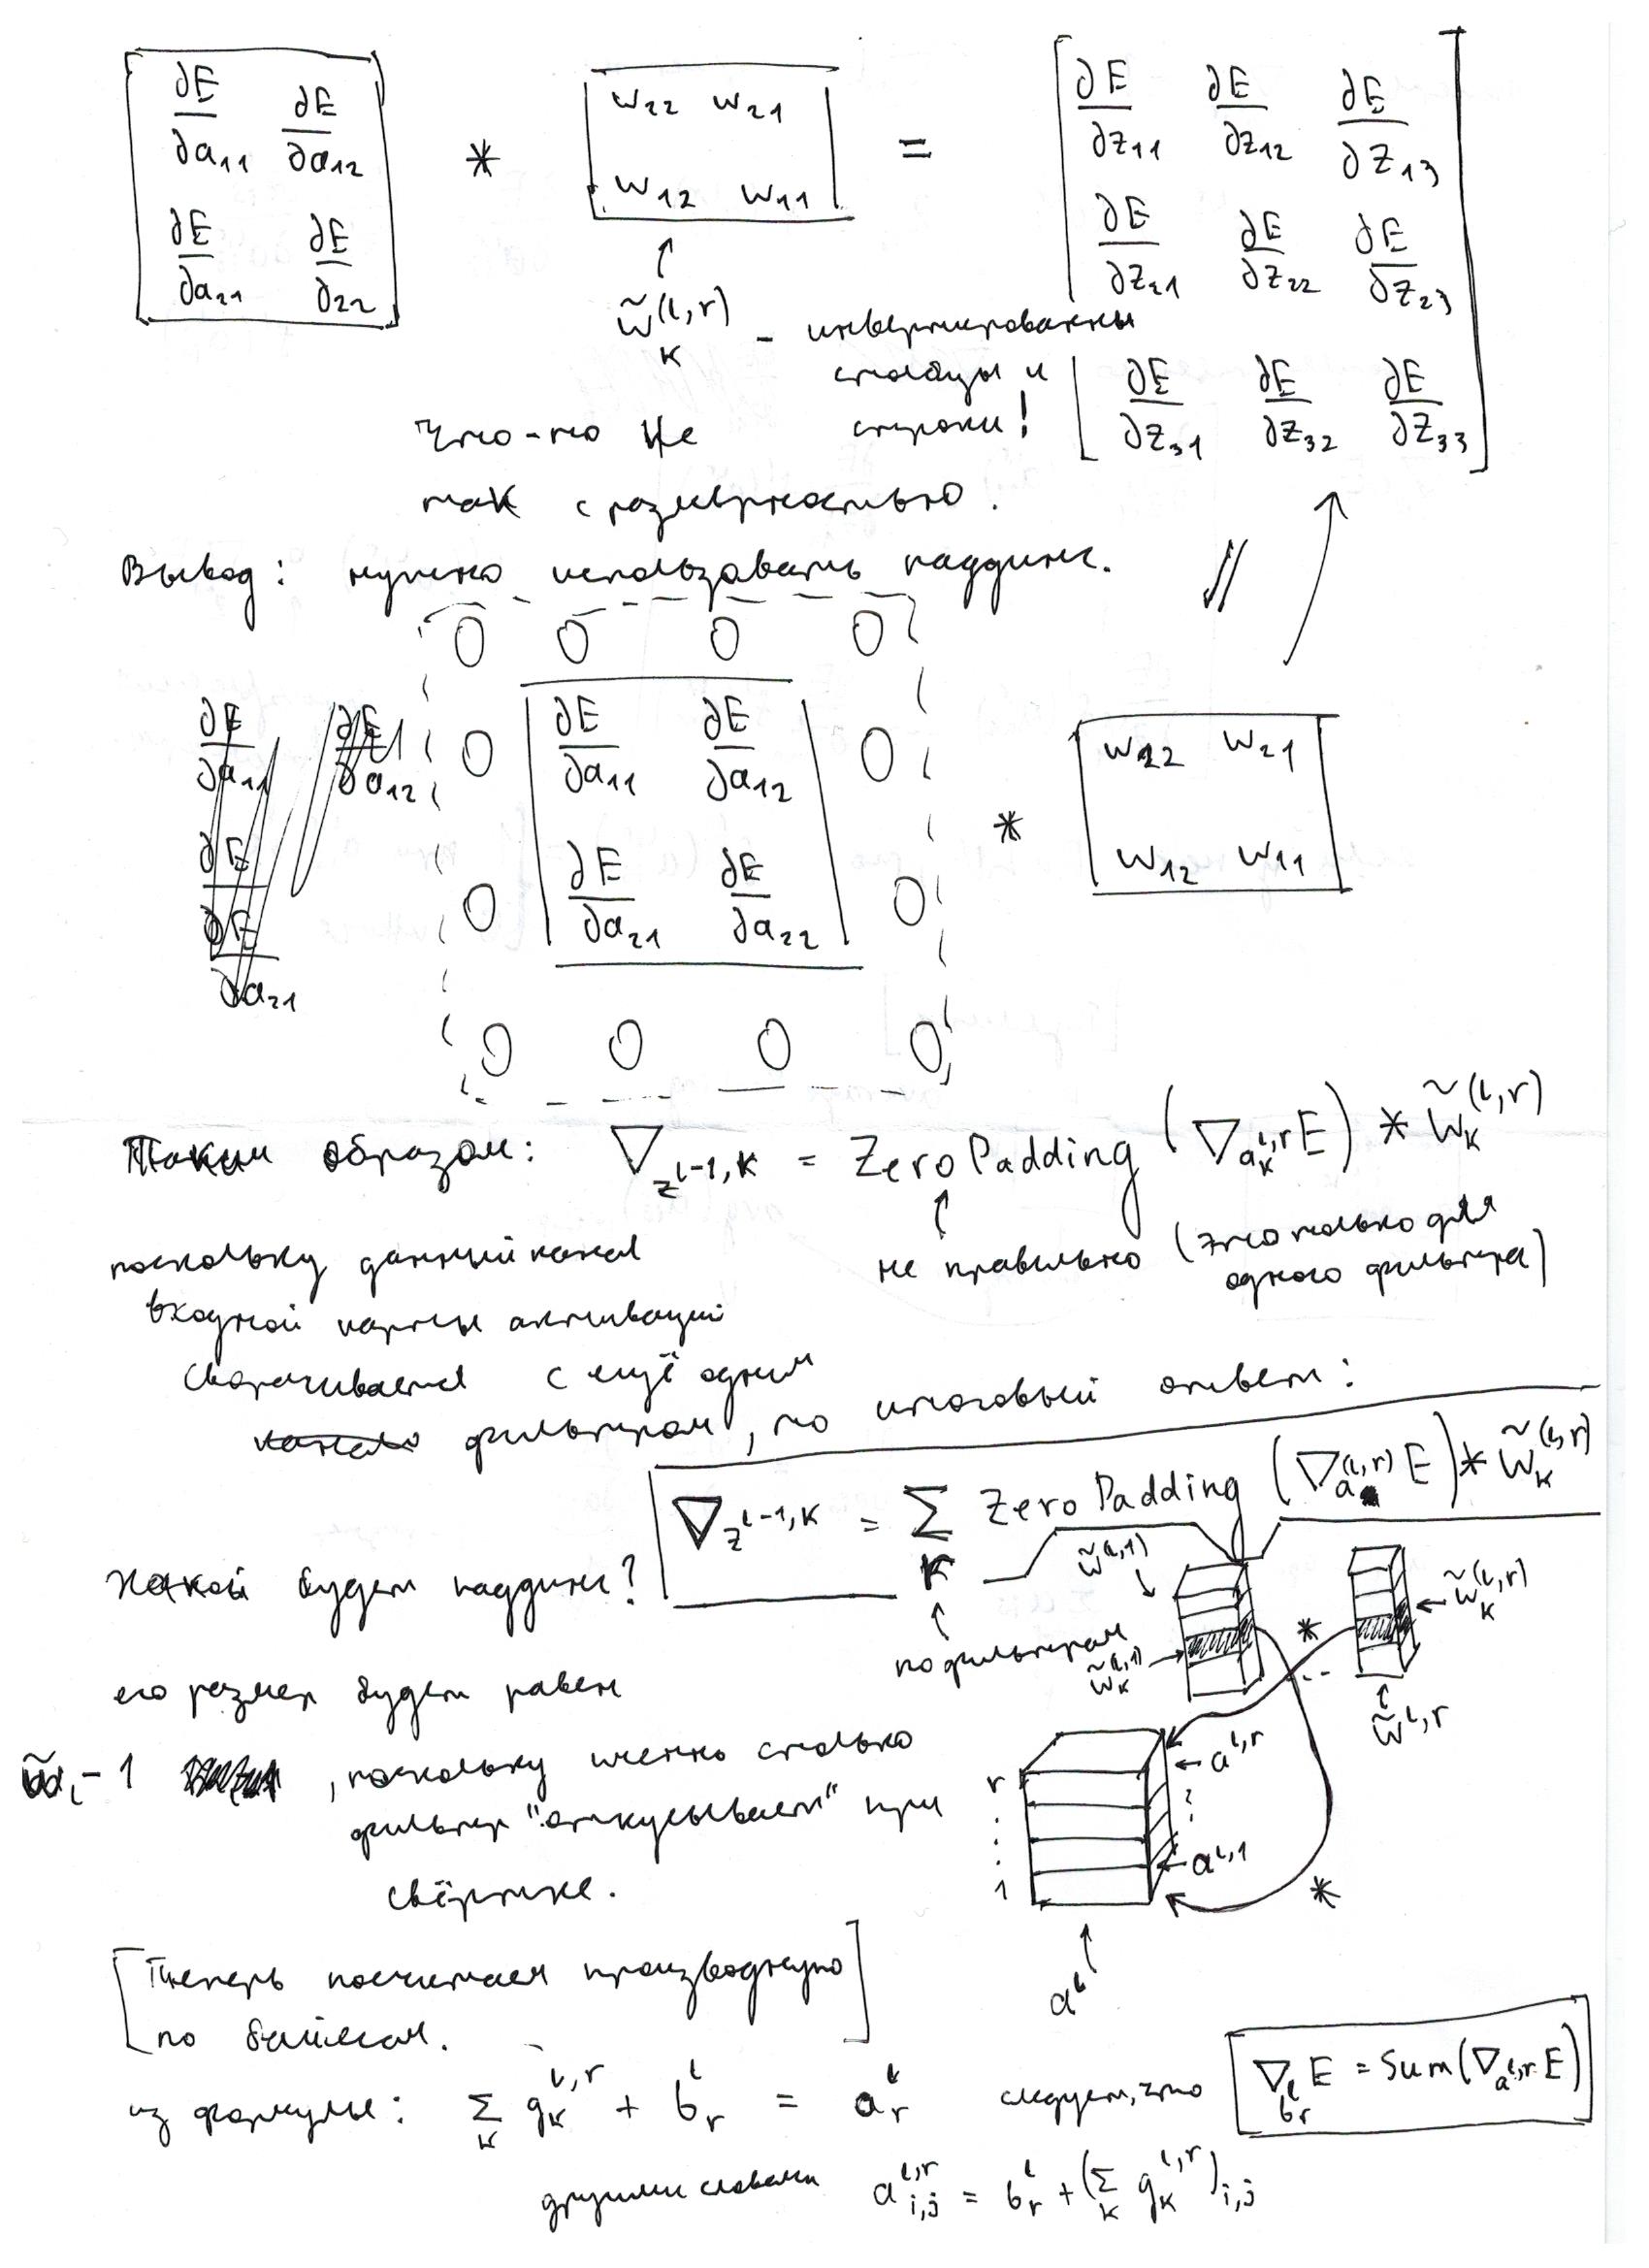 ∂E/∂a₁₁ ∂E/∂a₁₂ * w₂₂ w₂₁ = ∂E/∂z₁₁ ∂E/∂z₁₂ ∂E/∂z₁₃
∂E/∂a₂₁ ∂E/∂₂₂ w₁₂ w₁₁ ∂E/∂z₂₁ ∂E/∂z₂₂ ∂E/∂z₂₃
∂E/∂z₃₁ ∂E/∂z₃₂ ∂E/∂z₃₃
↑
w̃ₖ^(l,r) - инвертированны
столбцы и
строки!
Что-то не
так с размерностью.
Вывод: нужно использовать паддинг.
0 0 0 0
0 ∂E/∂a₁₁ ∂E/∂a₁₂ 0 * w₂₂ w₂₁
0 ∂E/∂a₂₁ ∂E/∂a₂₂ 0 w₁₂ w₁₁
0 0 0 0
Таким образом: ∇_z^l-1,k = ZeroPadding (∇_aₖ^l,r E) * w̃ₖ^(l,r)
↑
не правильно (это только для
одного фильтра)
поскольку данный канал
входной карты активаций
сворачивается с ещё одним
фильтром, то итоговый ответ:
∇_z^l-1,k = Σ_r Zero Padding (∇_a^(l,r) E) * w̃ₖ^(l,r)
↑
по фильтрам
Какой будет паддинг?
его размер будет равен
w̃ₗ - 1 , поскольку именно столько
фильтр "откусывает" при
свёртке.
w̃^(l,1)
w̃ₖ^(l,1)
*
...
w̃ₖ^(l,r)
w̃^l,r
r
1
a^l,r
a^l,1
*
a^l
[Теперь посчитаем производную
по байесам.]
из формулы: Σ_k gₖ^l,r + bᵣ^l = aᵣ^l следует, что ∇_bᵣ^l E = Sum(∇_a^l,r E)
другими словами a_i,j^l,r = bᵣ^l + (Σ_k gₖ^l,r)_i,j